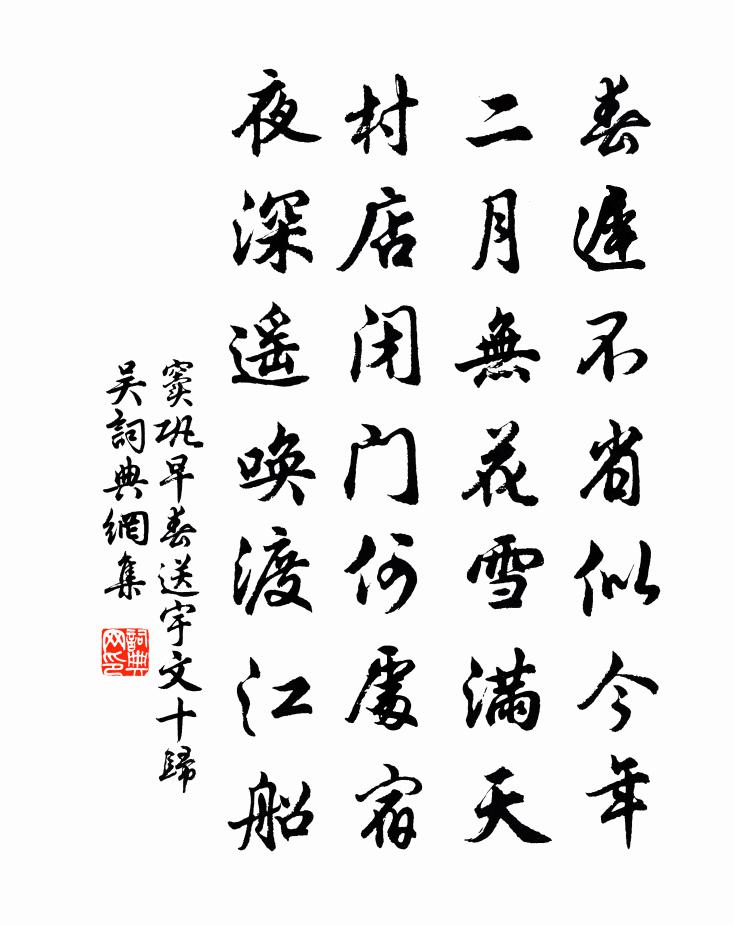 春遲不省似今年
二月無花雪滿天
村店闭门何處宿
夜深遥唤渡江船
竇巩早春送宇文十歸
吴詞典網集
詞典网印